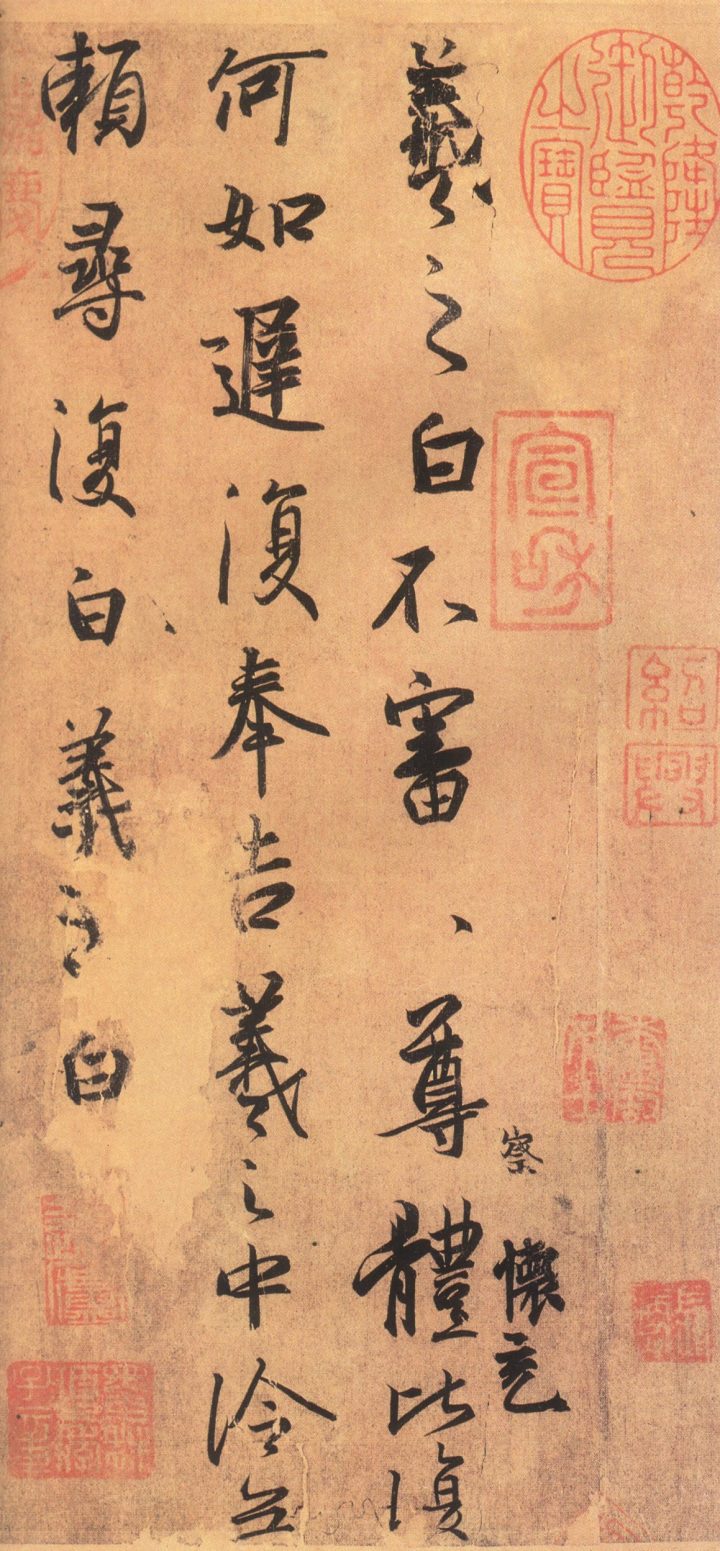 乾隆御覽之寶
宣和
紹興
察
懷充
羲之白不審、尊體比復
何如遲復奉告羲之中冷无
賴尋復白羲之白